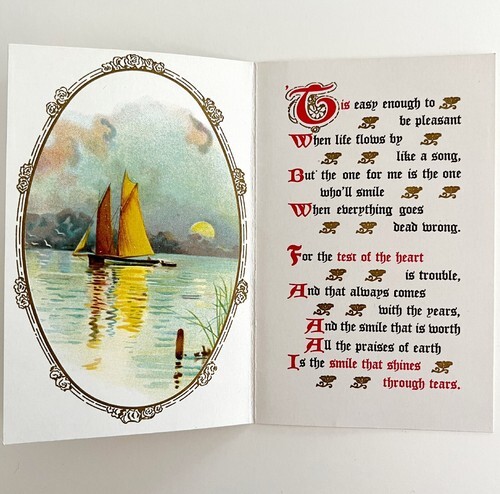 'Tis easy enough to
be pleasant
When life flows by
like a song,
But the one for me is the one
who'll smile
When everything goes
dead wrong.
For the test of the heart
is trouble,
And that always comes
with the years,
And the smile that is worth
All the praises of earth
Is the smile that shines
through tears.